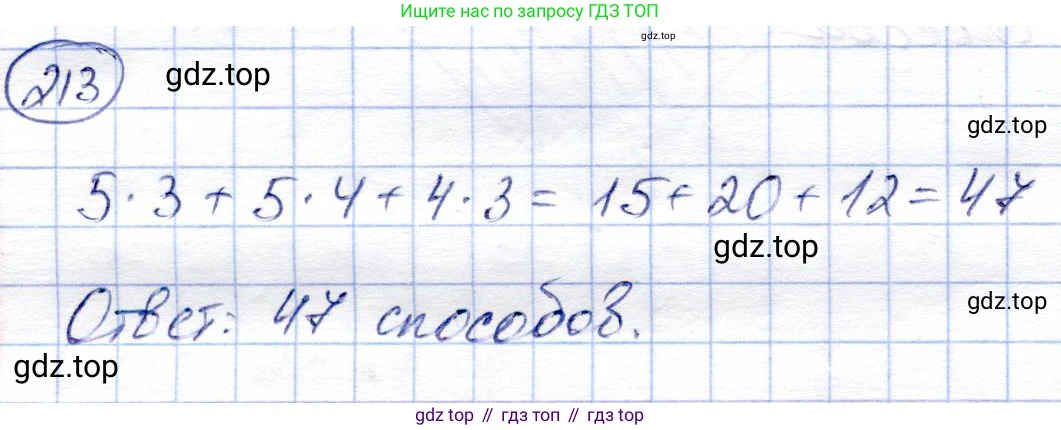 Ищите нас по запросу ГДЗ ТОП
gdz.top
213
gdz.top
gdz.top
5·3+5·4+4·3=15+20+12=47
gdz.top
Ответ: 47 способов.
gdz.top
gdz.top
gdz top // гдз топ // гдз top